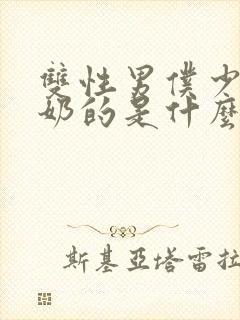 雙性男僕少
奶的是什麼
斯基亞塔雷拉